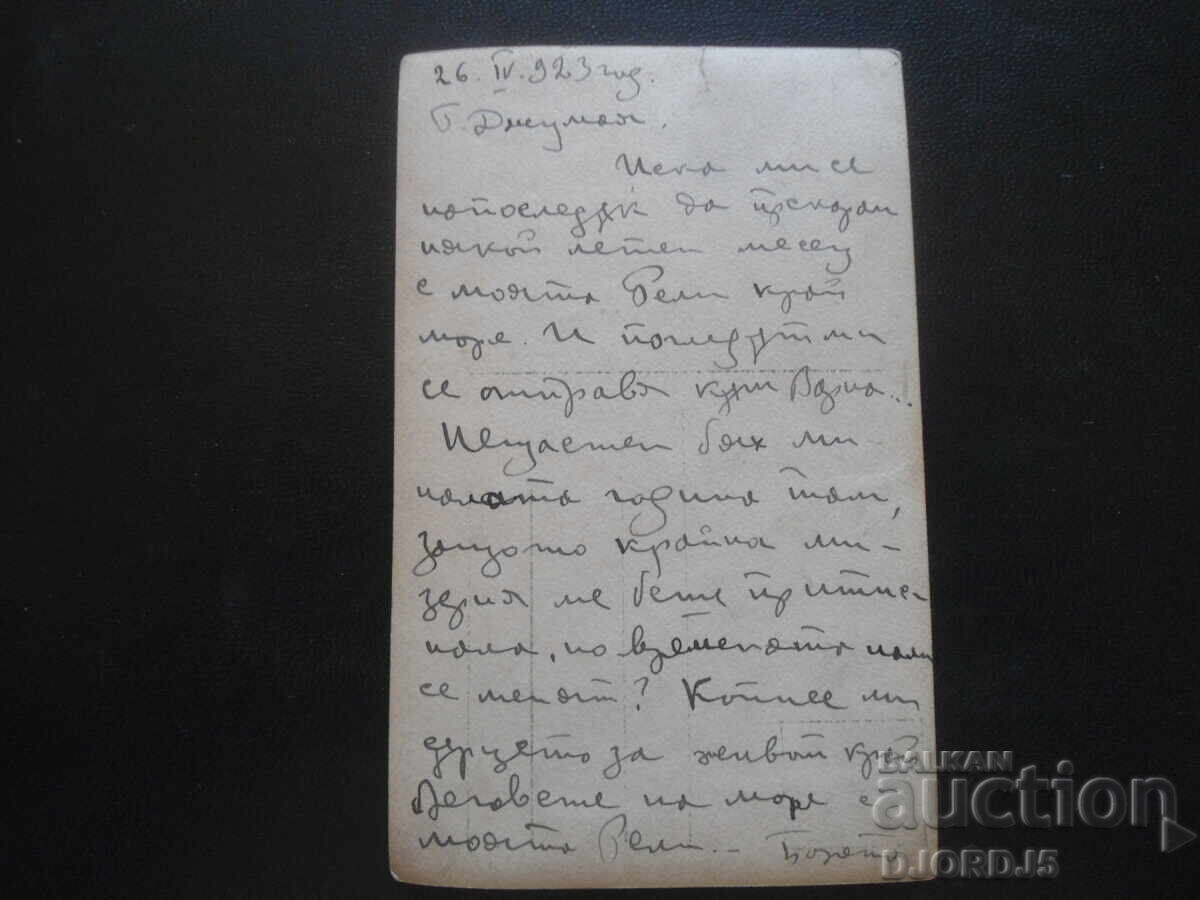 26. IV. 923 год.
Г. Джумая.
Иска ми се
напоследък да прекарам
някой летен месец
с моята Рели край
море. И погледът ми
се отправя към Варна...
Нещастен бях ми-
налата година там,
защото крайна ми-
зерия ме беше притис-
нала, но времената нали
се менят? Копнее ми
сърцето за живот край
бреговете на море с
моята Рели. –
BALKAN
auction
DJORDJ5